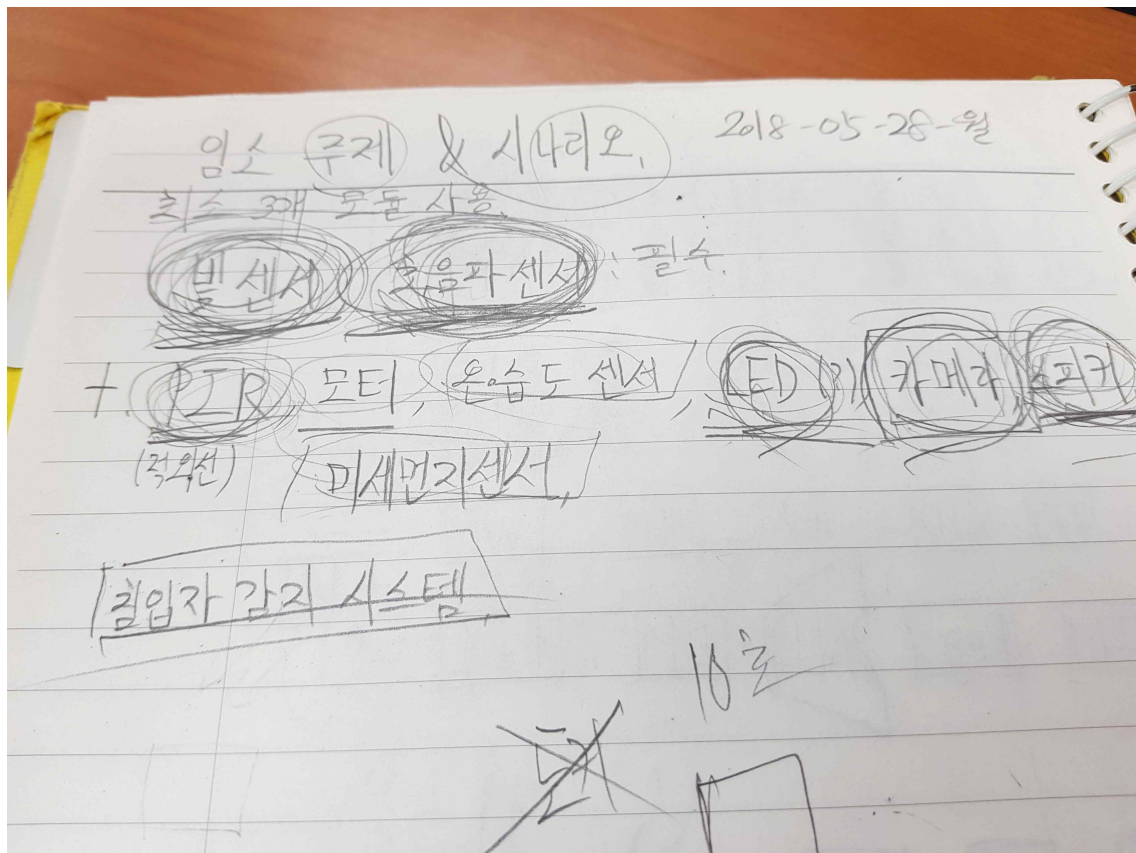 임소 주제 & 시나리오. 2018-05-28-월
최소 3개 모듈 사용.
빛센서 초음파센서 : 필수.
+ PIR 모터, 온습도센서, LED(3), 카메라 스피커
(적외선) 미세먼지센서,
침입자 감지 시스템
10초